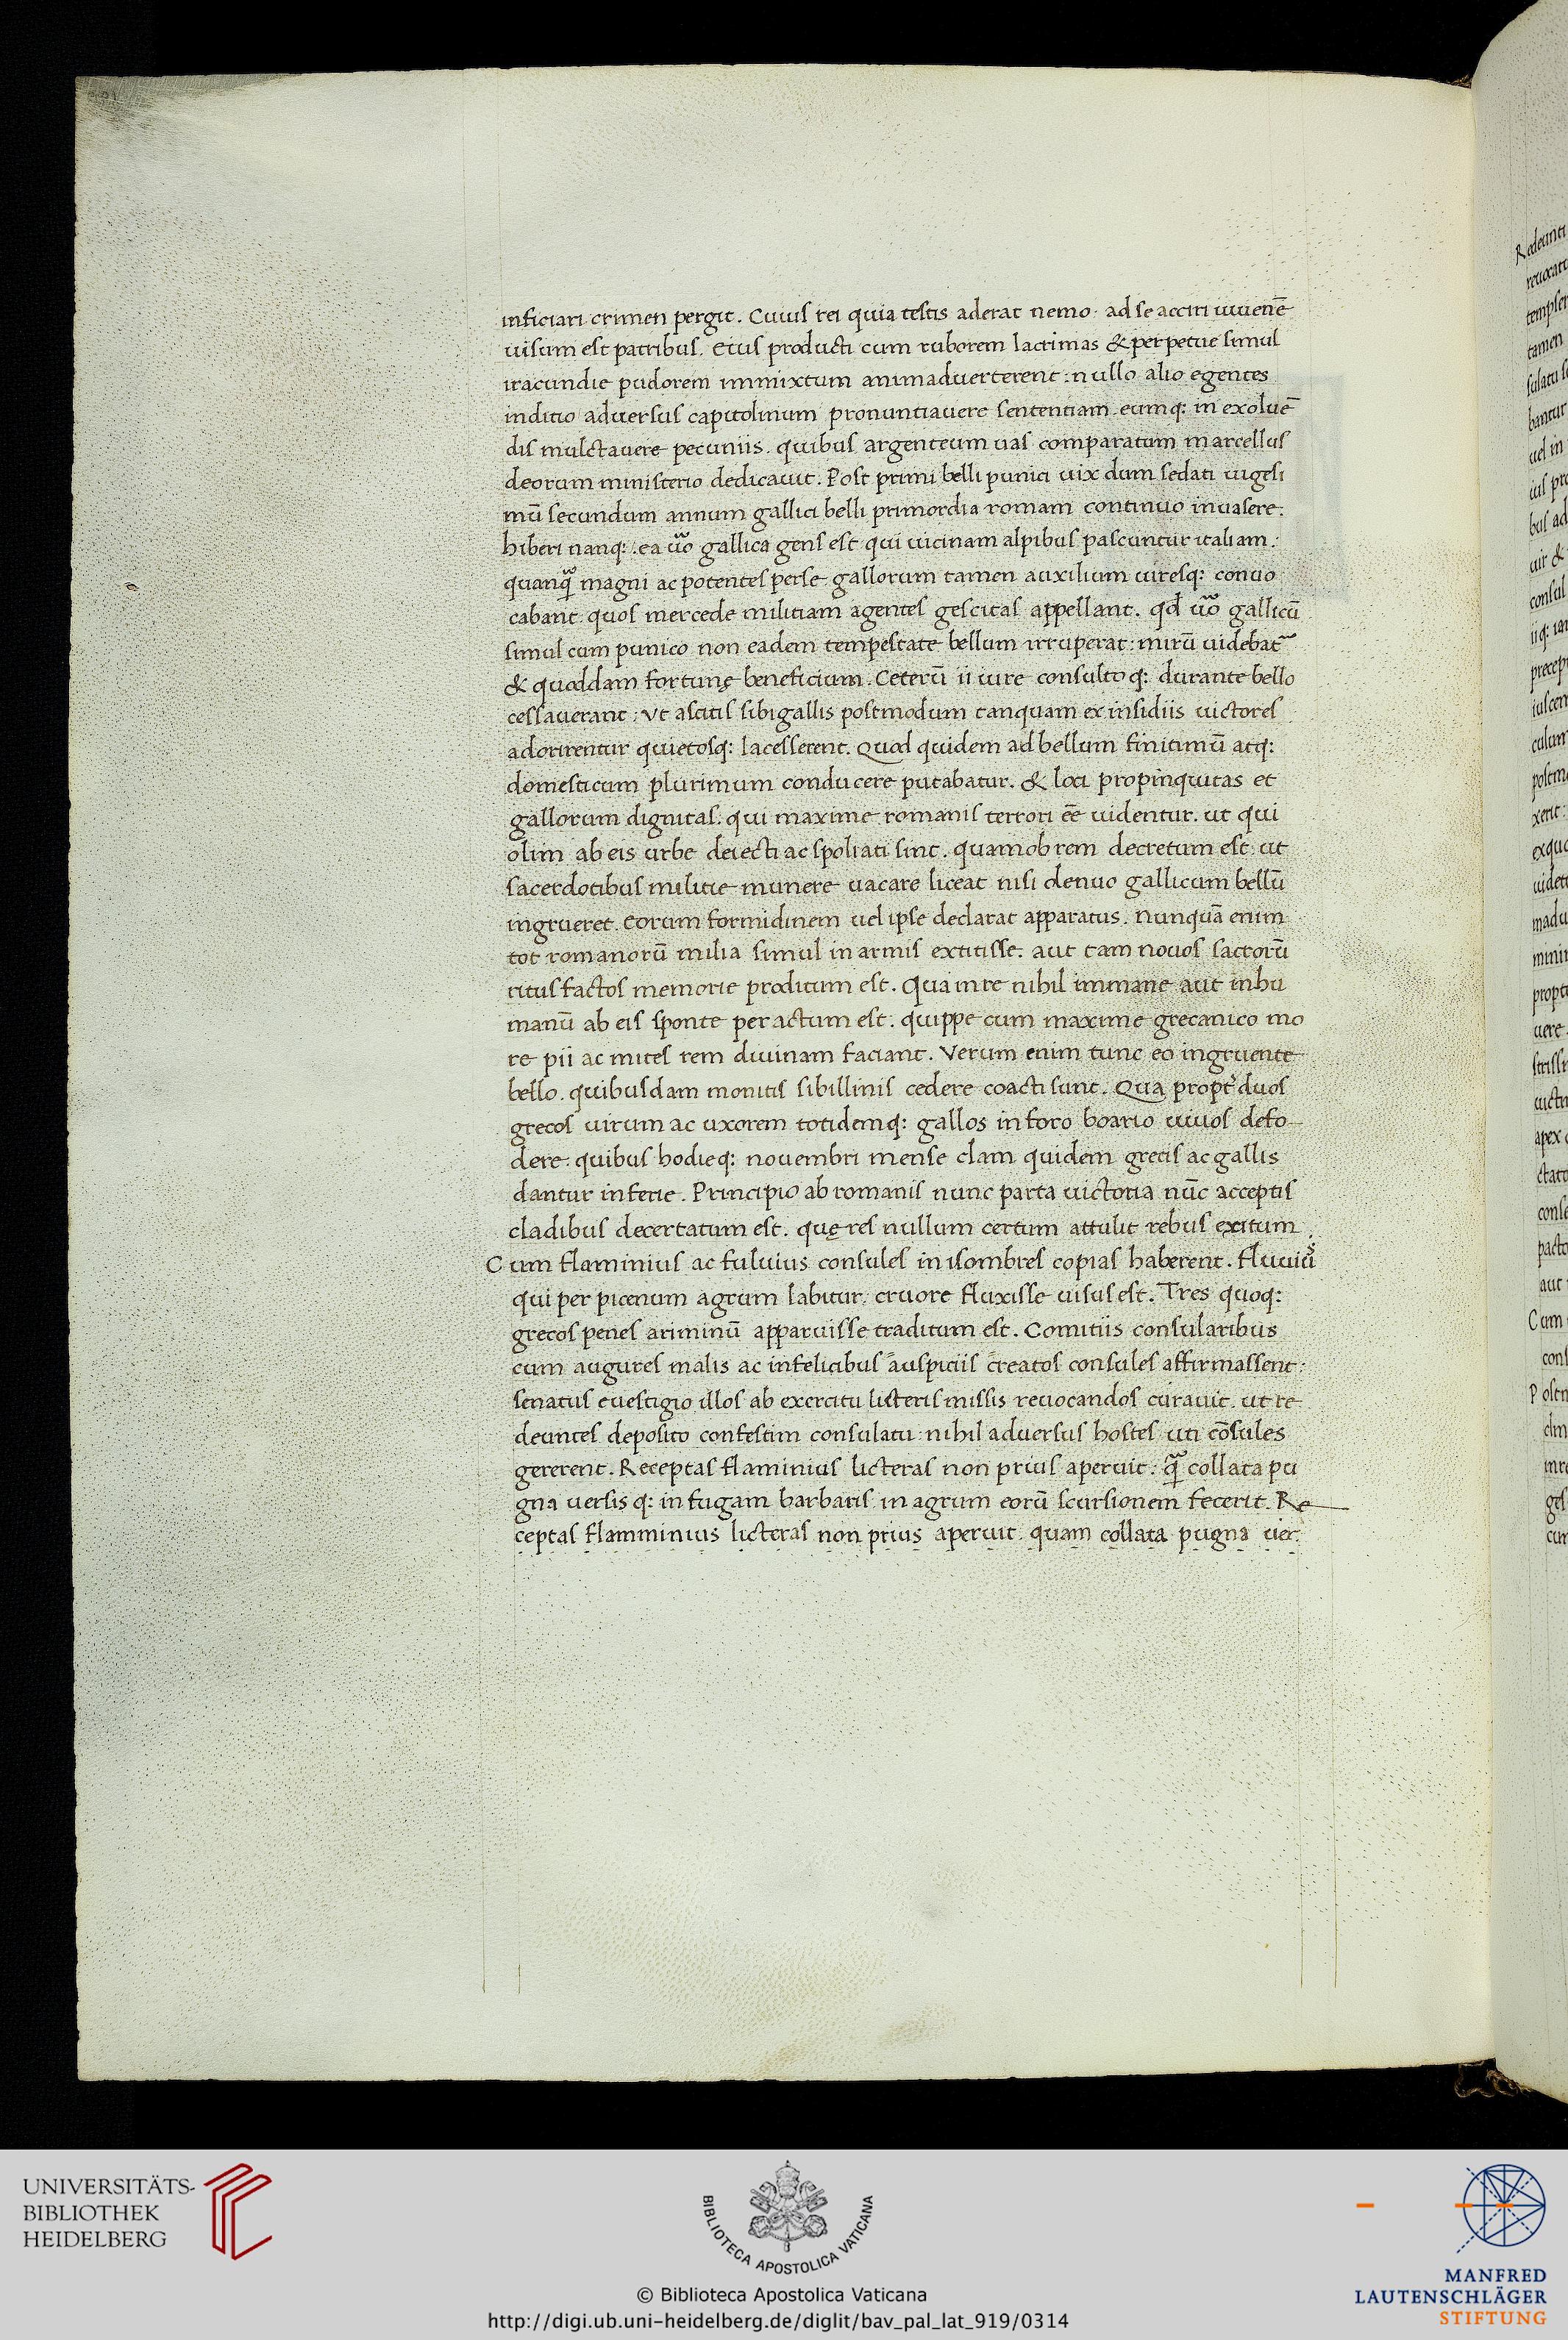 inficiari crimen pergit. Cuius rei quia testis aderat nemo. ad se acciri iuuenē
uisum est patribus. Eius producti cum ruborem lacrimas & perpetue simul
iracundie pudorem immixtum animaduerterent: nullo alio egentes
inditio aduersus capitolinum pronuntiauere sententiam. eumq: in exoluē
dis mulctauere pecuniis. quibus argenteum uas comparatum marcellus
deorum ministerio dedicauit. Post primi belli punici uix dum sedati uigesi
mū secundum annum gallici belli primordia romam continuo inuasere.
hiberi nanq: ea uo gallica gens est qui uicinam alpibus pascuntur italiam:
quanq̄ magni ac potentes perse gallorum tamen auxilium uiresq: conuo
cabant. quos mercede militiam agentes gescitas appellant. qd uo gallicū
simul cum punico non eadem tempestate bellum irruperat: mirū uidebat
& quoddam fortunę beneficium. Ceterū ii iure consulto q: durante bello
cessauerant: Vt ascitis sibi gallis postmodum tanquam ex insidiis uictores
adorirentur quietosq: lacesserent. Quod quidem ad bellum finitimū atq:
domesticum plurimum conducere putabatur. & loci propinquitas et
gallorum dignitas. qui maxime romanis terrori eē uidentur. ut qui
olim ab eis urbe deiecti ac spoliati sint. quamobrem decretum est. ut
sacerdotibus militie munere uacare liceat nisi denuo gallicum bellū
ingrueret. Eorum formidinem uel ipse declarat apparatus. Nunquā enim
tot romanorū milia simul in armis extitisse. aut tam nouos sacrorū
ritus factos memorie proditum est. Qua in re nihil immane aut inhu
manū ab eis sponte peractum est. quippe cum maxime grecanico mo
re pii ac mites rem diuinam faciant. Verum enim tunc eo ingruente
bello. quibusdam monitis sibillinis cedere coacti sunt. Qua propt duos
grecos uirum ac uxorem totidemq: gallos in foro boario uiuos defo
dere. quibus hodieq: nouembri mense clam quidem grecis ac gallis
dantur inferie. Principio ab romanis nunc parta uictoria nūc acceptis
cladibus decertatum est. quę res nullum certum attulit rebus exitum.
Cum flaminius ac fuluius consules in isombres copias haberent. fluuiūs
qui per picenum agrum labitur. cruore fluxisse uisus est. Tres quoq:
grecos penes ariminū apparuisse traditum est. Comitiis consularibus
cum augures malis ac infelicibus auspiciis creatos consules affirmassent:
senatus euestigio illos ab exercitu licteris missis reuocandos curauit. ut re
deuntes deposito confestim consulatu. nihil aduersus hostes uti cōsules
gererent. Receptas flaminius licteras non prius aperuit. q̄ collata pu
gna uersis q: in fugam barbaris in agrum eorū scursionem fecerit. Re
ceptas flamminius licteras non prius aperuit. quam collata pugna uer.
Redeunti
tamen
consul
Cum
UNIVERSITÄTS-
BIBLIOTHEK
HEIDELBERG
BIBLIOTECA APOSTOLICA VATICANA
© Biblioteca Apostolica Vaticana
http://digi.ub.uni-heidelberg.de/diglit/bav_pal_lat_919/0314
MANFRED
LAUTENSCHLÄGER
STIFTUNG